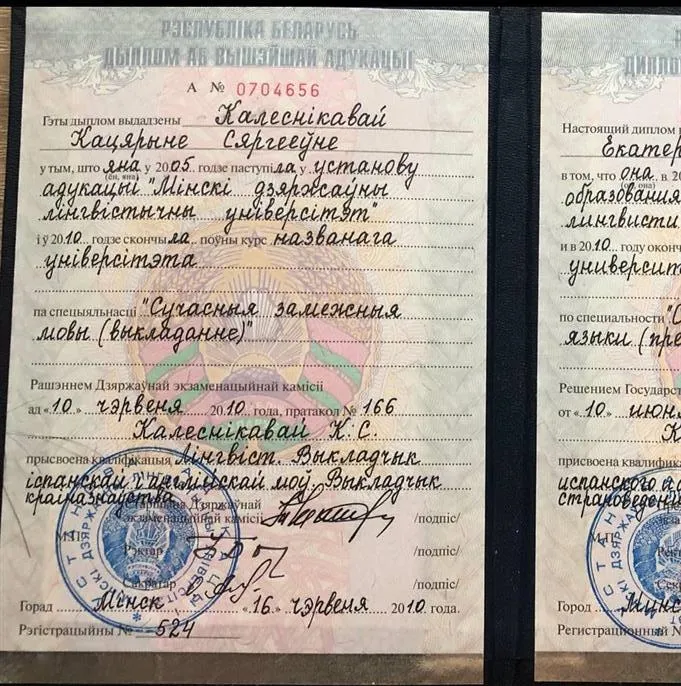 РЭСПУБЛІКА БЕЛАРУСЬ
ДЫПЛОМ АБ ВЫШЭЙШАЙ АДУКАЦЫІ
А № 0704656
Гэты дыплом выдадзены Калеснікавай
Кацярыне Сяргееўне
у тым, што яна у 2005 годзе паступіла у установу
(ён, яна)
адукацыі "Мінскі дзяржаўны
лінгвістычны універсітэт"
і ў 2010 годзе скончыла поўны курс названага
універсітэта
па спецыяльнасці "Сучасныя замежныя
мовы (выкладанне)"
Рашэннем Дзяржаўнай экзаменацыйнай камісіі
ад «10» чэрвеня 2010 года, пратакол № 166
Калеснікавай К.С.
прысвоена кваліфікацыя Лінгвіст. Выкладчык
іспанскай і англійскай моў. Выкладчык
краіназнаўства
Старшыня Дзяржаўнай
экзаменацыйнай камісіі /подпіс/
М.П. Рэктар /подпіс/
Сакратар /подпіс/
Горад Мінск, «16» чэрвеня 2010 года.
Рэгістрацыйны № 524
ДИПЛОМ
Настоящий диплом
Екатер
в том, что она в 20
(он, она)
образования
лингвисти
и в 2010 году оконч
университ
по специальности "С
языки (пре
Решением Государст
от «10» июн
К
присвоена квалифика
испанского и а
страноведени
М.П.
Город Минс
Регистрационный №